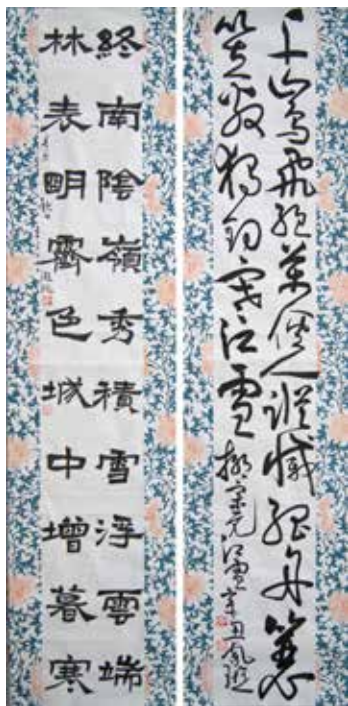 千山鳥飛絕萬徑人蹤滅孤舟簑
笠翁獨釣寒江雪
柳宗元江雪辛丑
終南陰嶺秀積雪浮雲端
林表明霽色城中增暮寒